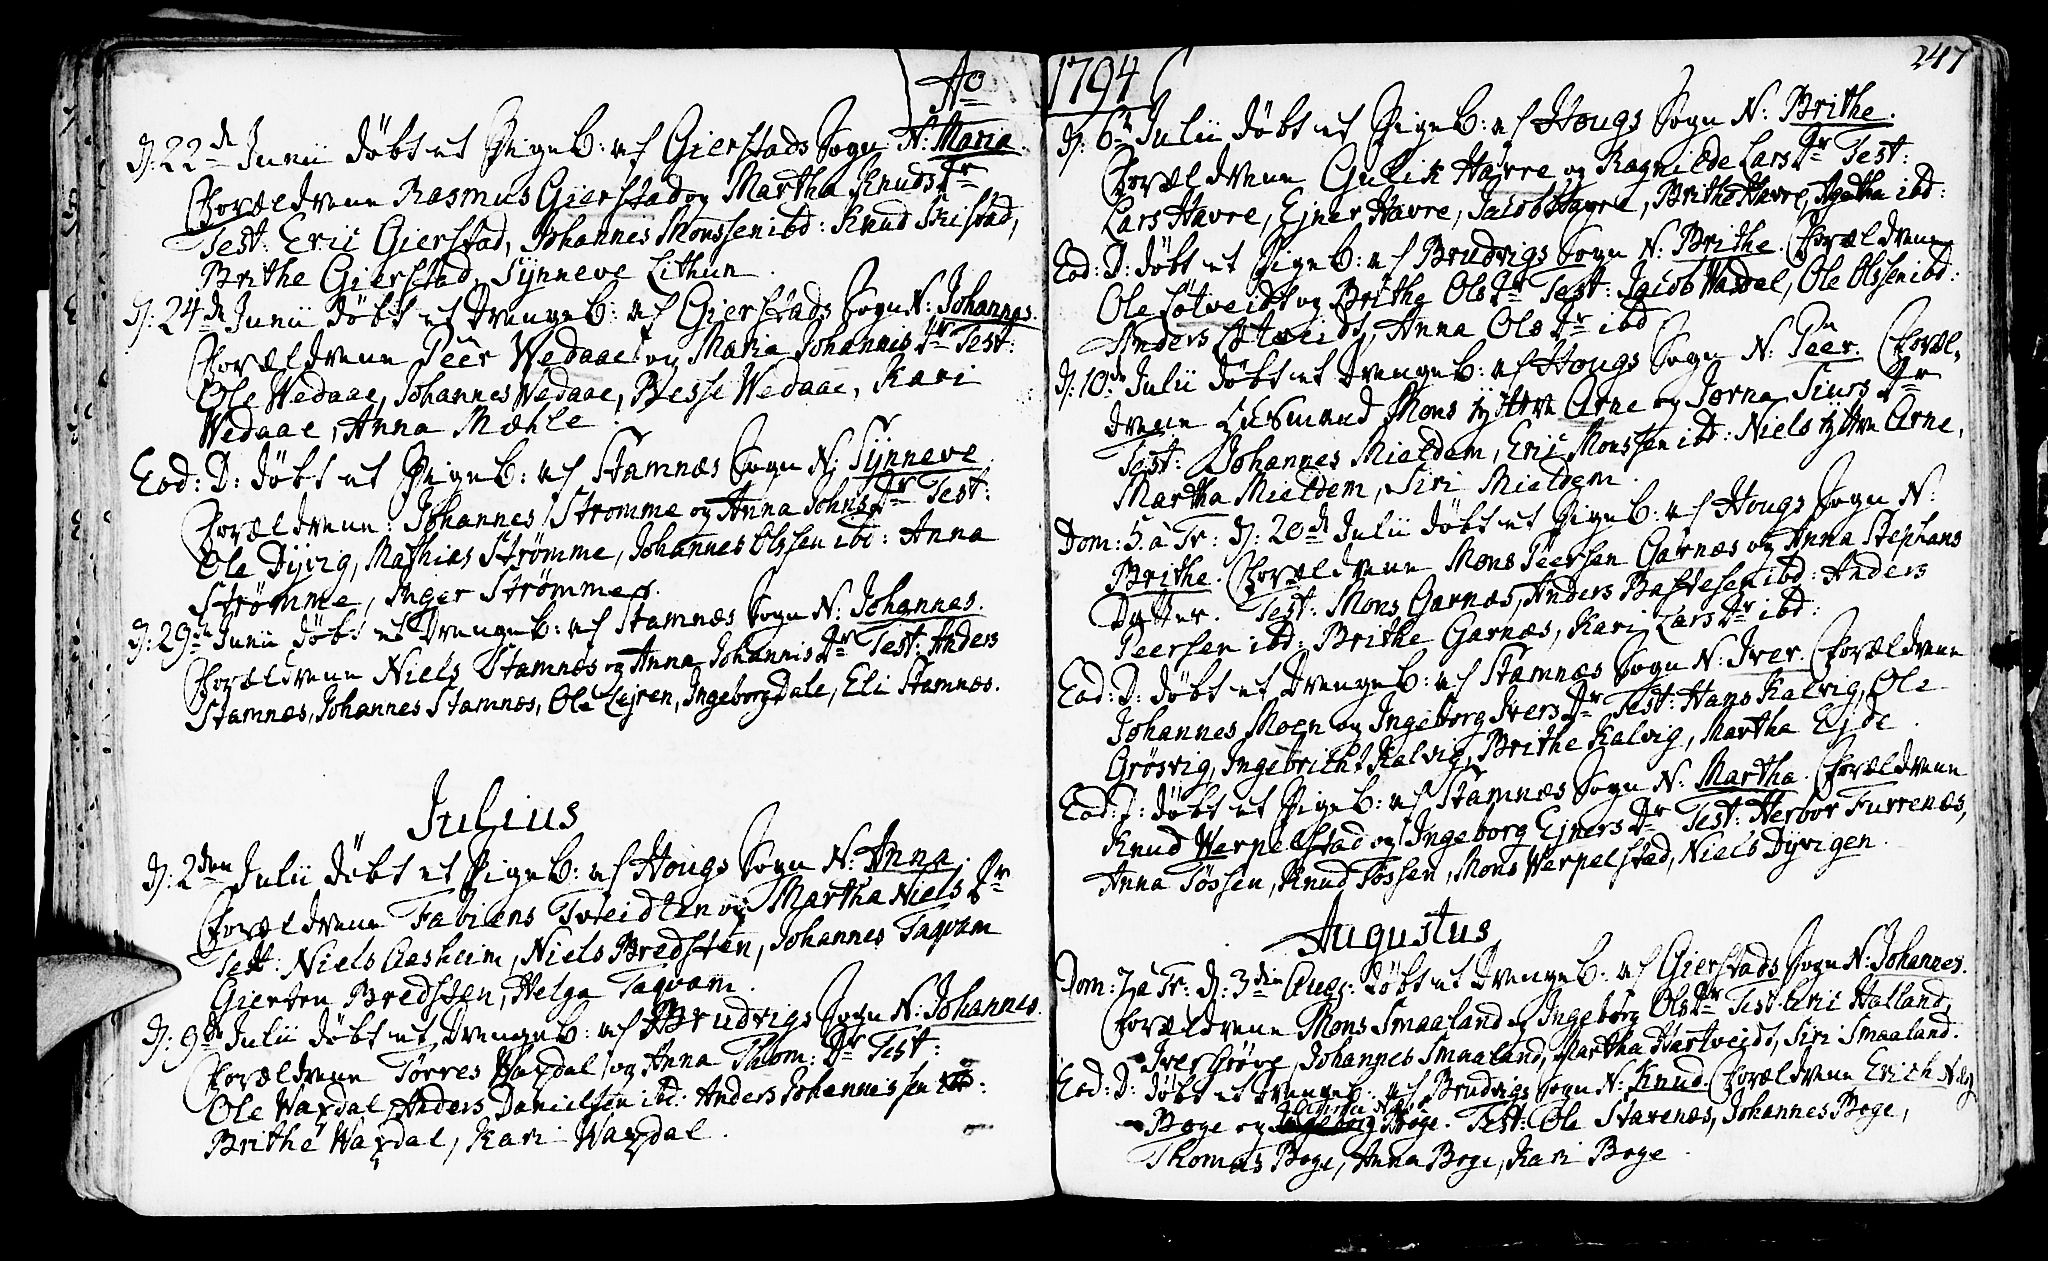 Ao 1794
247
D: 22de Junii döbt et Pigeb: af Gierstads Sogn N: Maria.
Forældrene Rasmus Gierstad og Martha Knuds Dr
Test: Eric Gierstad, Johannes Monssen ibd: Knud Skistad,
Brithe Gierstad, Sÿnneve Lithun.
D: 24de Junii döbt et Drengeb: af Gierstads Sogn N: Johannes.
Forældrene Peer Wedaae og Maria Johannis Dr Test:
Ole Wedaae, Johannes Wedaae, Besse Wedaae, Kari
Wedaae, Anna Mæhle.
Eod: D: döbt et Pigeb: af Stamnæs Sogn N: Sÿnneve.
Forældrene: Johannes Stromme og Anna Johns Dr Test:
Ole Dÿvig, Mathias Strömme, Johannes Olssen ibd: Anna
Strömme, Inger Strömme.
D: 29de Junii döbt et Drengeb: af Stamnæs Sogn N: Johannes.
Forældrene Niels Stamnæs og Anna Johannis Dr Test: Anders
Stamnæs, Johannes Stamnæs, Ole Lejren, Ingeborg Dale, Eli Stamnæs.
Julius
D: 2den Julii döbt et Pigeb: af Hougs Sogn N: Anna.
Forældrene Fabiens Tveidten og Martha Niels Dr
Test: Niels Aasheim, Niels Bredsten, Johannes Taqvam
Gierten Bredsten, Helga Taqvam.
D: 9de Julii döbt et Drengeb: af Brudvigs Sogn N: Johannes.
Forældrene Törres Waxdal og Anna Thom: Dr Test:
Ole Waxdal, Anders Danielsen ibd: Anders Johannissen ibd:
Brithe Waxdal, Kari Waxdal.
D: 6te Julii döbt et Pigeb: af Hougs Sogn N: Brithe.
Forældrene Gulik Havre og Ragnilde Lars Dr Test:
Lars Havre, Ejner Havre, Jacob Havre, Brithe Havre, Agatha ibd:
Eod: D: döbt et Pigeb: af Brudvigs Sogn N: Brithe. Forældrene
Ole Sötveidt og Brithe Ols Dr Test: Jacob Waxdal, Ole Olssen ibd:
Anders Sötveidt, Anna Ols Dr ibd
D: 10de Julii döbt et Drengeb: af Hougs Sogn N: Peer. Foræl,
drene Husmand Mons Ytre Arne og Jorna Siurs Dr
Test: Johannes Mieldem, Eric Monssen ibd: Niels Ytre Arne,
Martha Mieldem, Siri Mieldem.
Dom: 5. a Tr: D: 20de Julii döbt et Pigeb: af Hougs Sogn N:
Brithe. Forældrene Mons Peersen Garnæs og Anna Stephans
Datter. Test: Mons Garnæs, Anders Bastesen ibd: Anders
Peersen ibd: Brithe Garnæs, Kari Lars Dr ibd:
Eod: D: döbt et Drengeb: af Stamnæs Sogn N: Iver. Forældrene
Johannes Moen og Ingeborg Ivers Dr Test: Hans Kalvig, Ole
Grösvig, Ingebricht Kalvig, Brithe Kalvig, Martha Ejde.
Eod: D: döbt et Pigeb: af Stamnæs Sogn N: Martha. Forældrene
Knud Werpelstad og Ingeborg Ejners Dr Test: Herbor Furrenæs,
Anna Tössen, Knud Tössen, Mons Werpelstad, Niels Dÿvigen.
Augustus
Dom: 7 a Tr: D: 3die Aug: döbt et Drengeb: af Gierstads Sogn N: Johannes.
Forældrene Mons Smaaland og Ingeborg Ols Dr Test: Eric Halland,
Iver Gröve, Johannes Smaaland, Martha Hartveidt, Siri Smaaland.
Eod: D: döbt et Drengeb: af Brudvigs Sogn N: Knud. Forældrene Erich
Boge og Boge. Test: Ole Starenæs, Johannes Boge,
Thomas Boge, Anna Boge, Kari Boge.